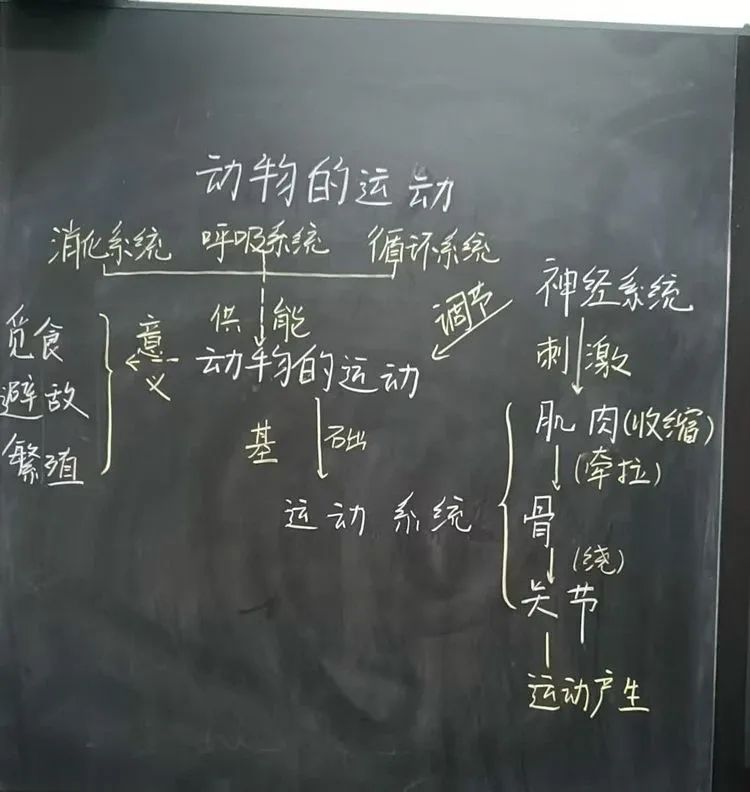 动物的运动
消化系统 呼吸系统 循环系统
神经系统
调节
供能
刺激
觅食
避敌
繁殖
意义
动物的运动
基础
肌肉(收缩)
(牵拉)
运动系统
骨
(绕)
关节
运动产生